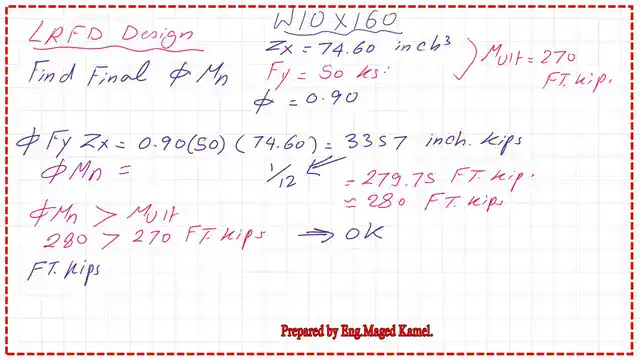 LRFD Design
W10X160
Find Final ϕ Mn
Zx = 74.60 inch³
Fy = 50 ksi
ϕ = 0.90
Mult = 270
FT. Kip.
ϕ Fy Zx = 0.90(50) (74.60) = 3357 inch. Kips
ϕ Mn =
1/12
= 279.75 FT. Kip.
≈ 280 FT. Kips
ϕ Mn > Mult
280 > 270 FT. Kips ⇒ OK
FT. Kips
Prepared by Eng.Maged Kamel.